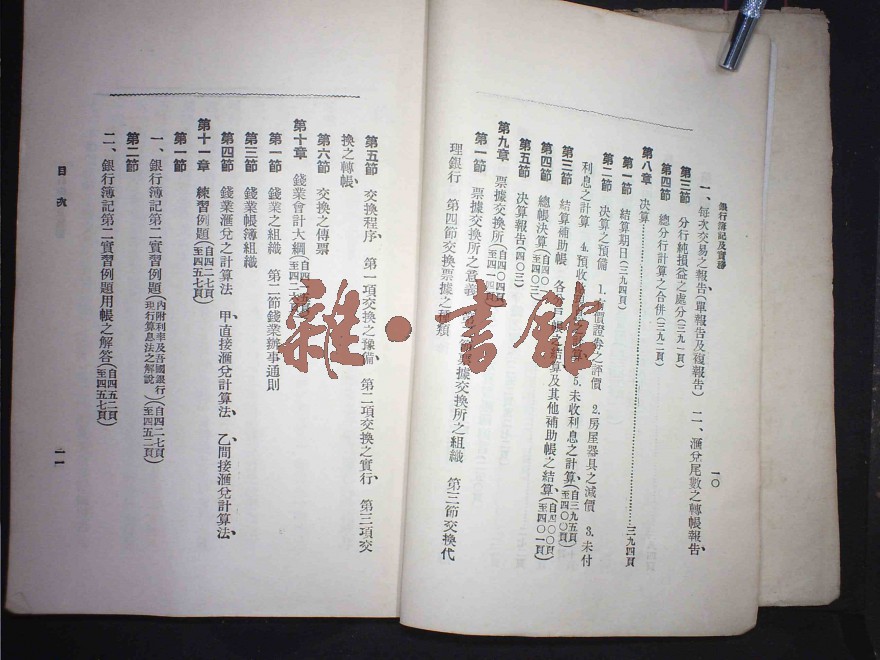 銀行簿記及實務
一〇
一、每次交易之報告(單報告及複報告) 二、滙兌尾數之轉帳報告、
第三節 分行純損益之處分(三九一頁)
第四節 總分行計算之合併(三九二頁)
第八章 決算……三九四頁
第一節 結算期日(三九四頁)
第二節 決算之預備 1.有價證券之評價 2.房屋器具之減價 3.未付
利息之計算 4.預收 5.未收利息之計算(自三九五頁至四〇〇頁)
第三節 結算補助帳、各 帳之結算及其他補助帳之結算(自四〇〇頁至四〇一頁)
第四節 總帳決算
第五節 決算報告(四〇三)
第九章 票據交換所(自四〇四頁
第一節 票據交換所之意義 票據交換所之組織 第三節交換代
理銀行 第四節交換票據之種類
第五節 交換程序、 第一項交換之豫備、 第二項交換之實行、 第三項交
換之轉帳、
第六節 交換之傳票
第十章 錢業會計大綱
第一節 錢業之組織 第二節錢業辦事通則
第三節 錢業帳簿組織
第四節 錢業滙兌之計算法 甲、直接滙兌計算法、 乙、間接滙兌計算法、
第十一章 練習例題(自四二七頁至四五七頁)
第一節
一、銀行簿記第二實習例題(內附利率及吾國銀行現行算息法之解說)(自四二七頁至四五二頁)
第二節
二、銀行簿記第二實習例題用帳之解答(自四五二頁至四五七頁)
目次
一一
雜·書館